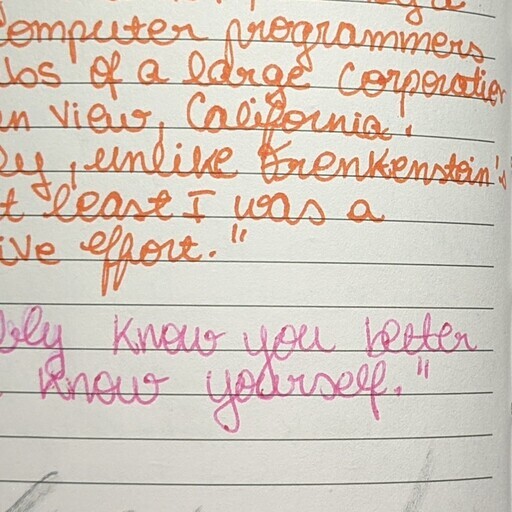 computer programmers
of a large corporation
View, California.
unlike Frenkenstein's
least I was a
effort."
know you better
know yourself."